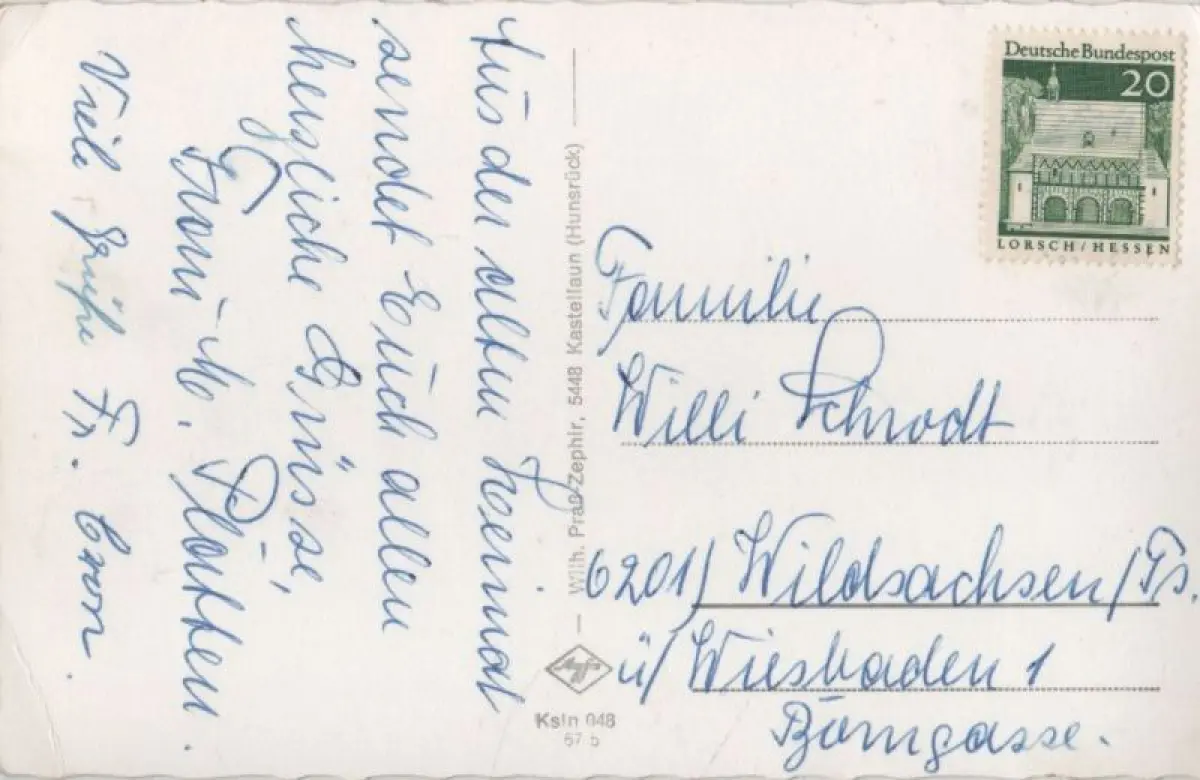 Aus der alten Heimat
sendet Euch allen
herzliche Grüsse,
Frau M.
Viele Grüße Fr.
Wilh. Praß-Zephir, 5448 Kastellaun (Hunsrück)
Agfa
Ksln 048
67 5
Deutsche Bundespost
20
LORSCH/HESSEN
Familie
Willi Schrodt
6201) Wildsachsen/Ts.
ü/Wiesbaden 1
Borngasse.